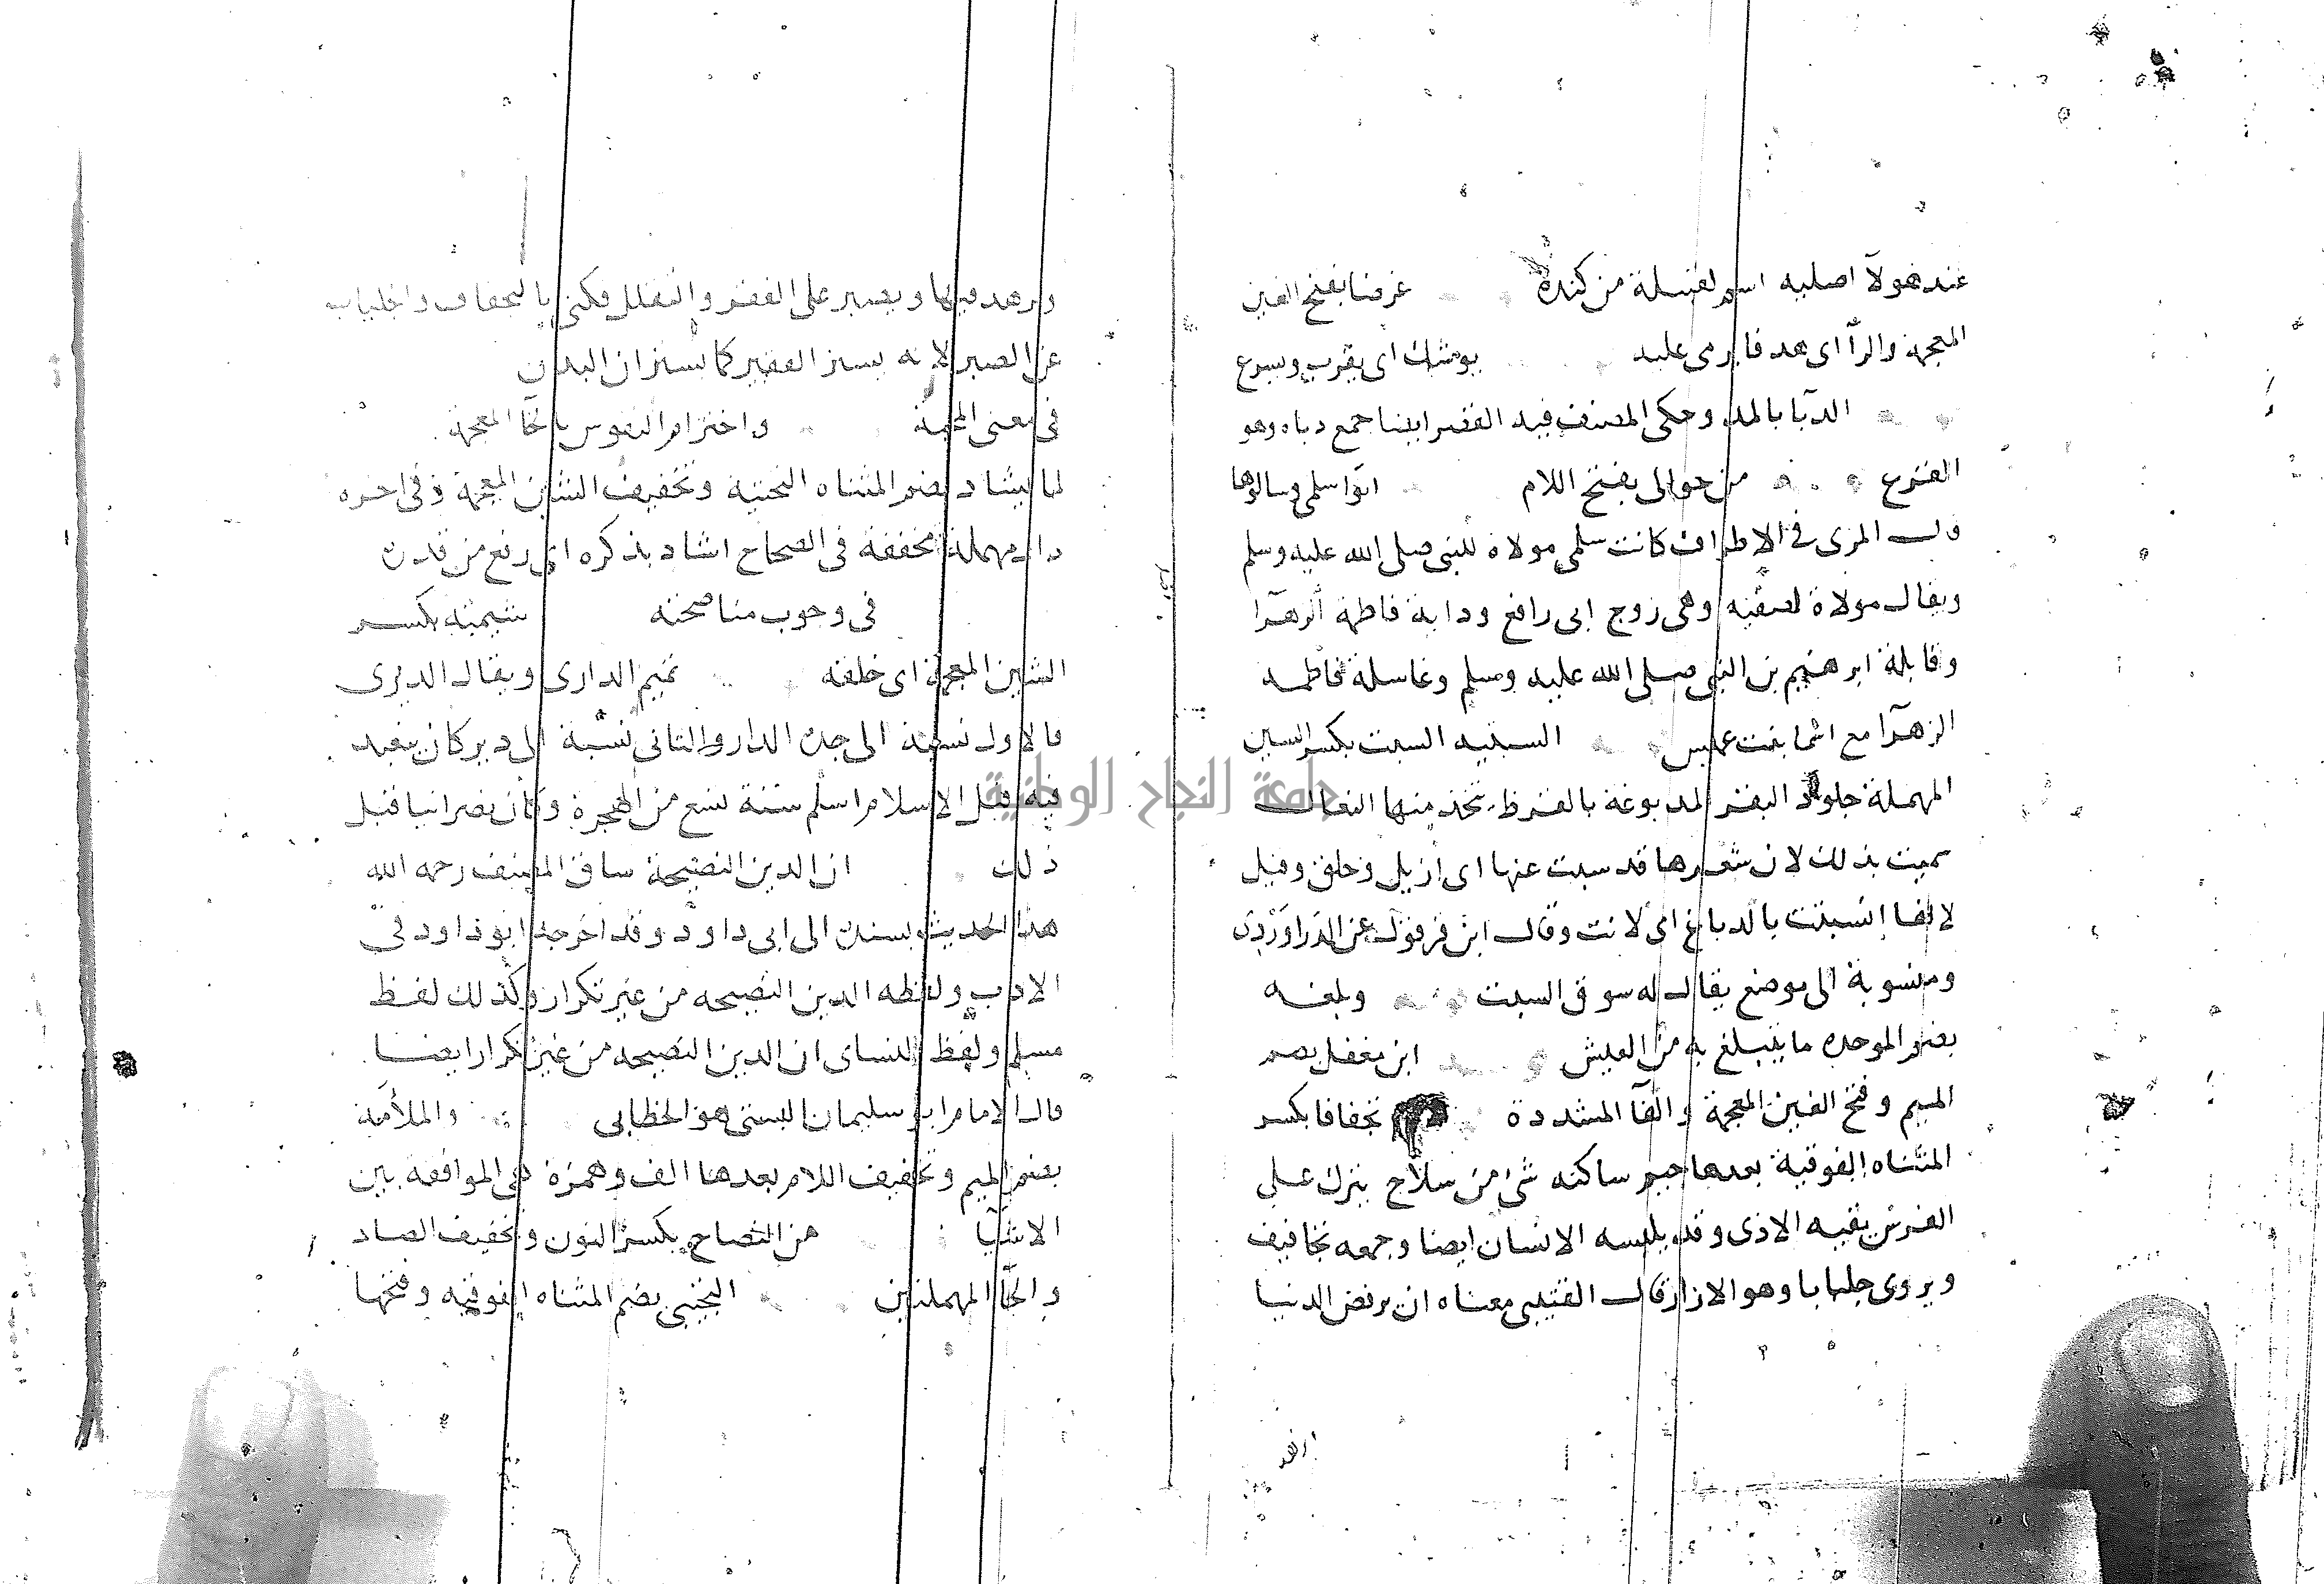 عند هولآ اصليه اسم لقبيلة من كندة غرضا بفتح الغين
المعجمة والرآ اى هدفا يرمى عليه يوشك اى يقرب ويسرع
الدبا بالمد وحكى المصنف فيه القصر ايضا جمع دباه وهو
القرع من حوالى بفتح اللام اتوا سلمى وسالوها
قال المزى فى الاطراف كانت سلمى مولاة للنبى صلى الله عليه وسلم
ويقال مولاة لصفيه وهى زوج ابى رافع وداية فاطمة الزهرآ
وقابلة ابرهيم بن النبى صلى الله عليه وسلم وغاسلة فاطمه
الزهرآ مع اسما بنت عميس السبتيه السبت بكسر السين
المهملة جلود البقر المدبوغة بالقرظ يتخذ منها النعال
سميت بذلك لان شعرها قد سبت عنها اى ازيل وحلق وقيل
لانها انسبتت بالدباغ اى لانت وقال ابن قرقول عن الدراوردى
ومنسوبة الى موضع يقال له سوق السبت وبلغه
بضم الموحده ما يتبلغ به من العيش ابن مغفل بضم
الميم وفتح الغين المعجمة والفآ المشددة تجفافا بكسر
المثناه الفوقية بعدها جيم ساكنه شئ من سلاح يترك على
الفرس يقيه الاذى وقد يلبسه الانسان ايضا وجمعه تجافيف
ويروى جلبابا وهو الازار قال القتيبى معناه ان يرفض الدنيا
ويزهد فيها ويصبر على الفقر والتقلل فكنى بالتجفاف والجلباب
عن الصبر لانه يستر الفقير كما يستران البدن
فى معنى المحبة واخترام النفوس بالخآ المعجمة
لما يشاد بضم المثناه التحتية وتخفيف الشين المعجمة وفى اخره
دال مهملة مخففة فى الصحاح اشاد بذكره اى رفع من قدره
فى وجوب مناصحته شيمته بكسر
الشين المعجمة اى خلقه تميم الدارى ويقال الديرى
فالاول نسبة الى جده الدار والثانى نسبة الى دير كان يتعبد
فيه قبل الاسلام اسلم سنة تسع من الهجرة وكان نصرانيا قبل
ذلك ان الدين النصيحة ساق المصنف رحمه الله
هذا الحديث بسنده الى ابى داود وقد اخرجه ابو داود فى
الادب ولفظه الدين النصيحه من غير تكرار وكذلك لفظ
مسلم ولفظ النساى ان الدين النصيحه من غير تكرار ايضا
قال الامام ابو سليمان البستى هو الخطابى والملأمة
بضم الميم وتخفيف اللام بعدها الف وهمزة هى الموافقه بين
الاشيآ من النصاح بكسر النون وتخفيف الصاد
والحآ المهملتين التجيبى بضم المثناه الفوقيه وفتحها
جامعة النجاح الوطنية